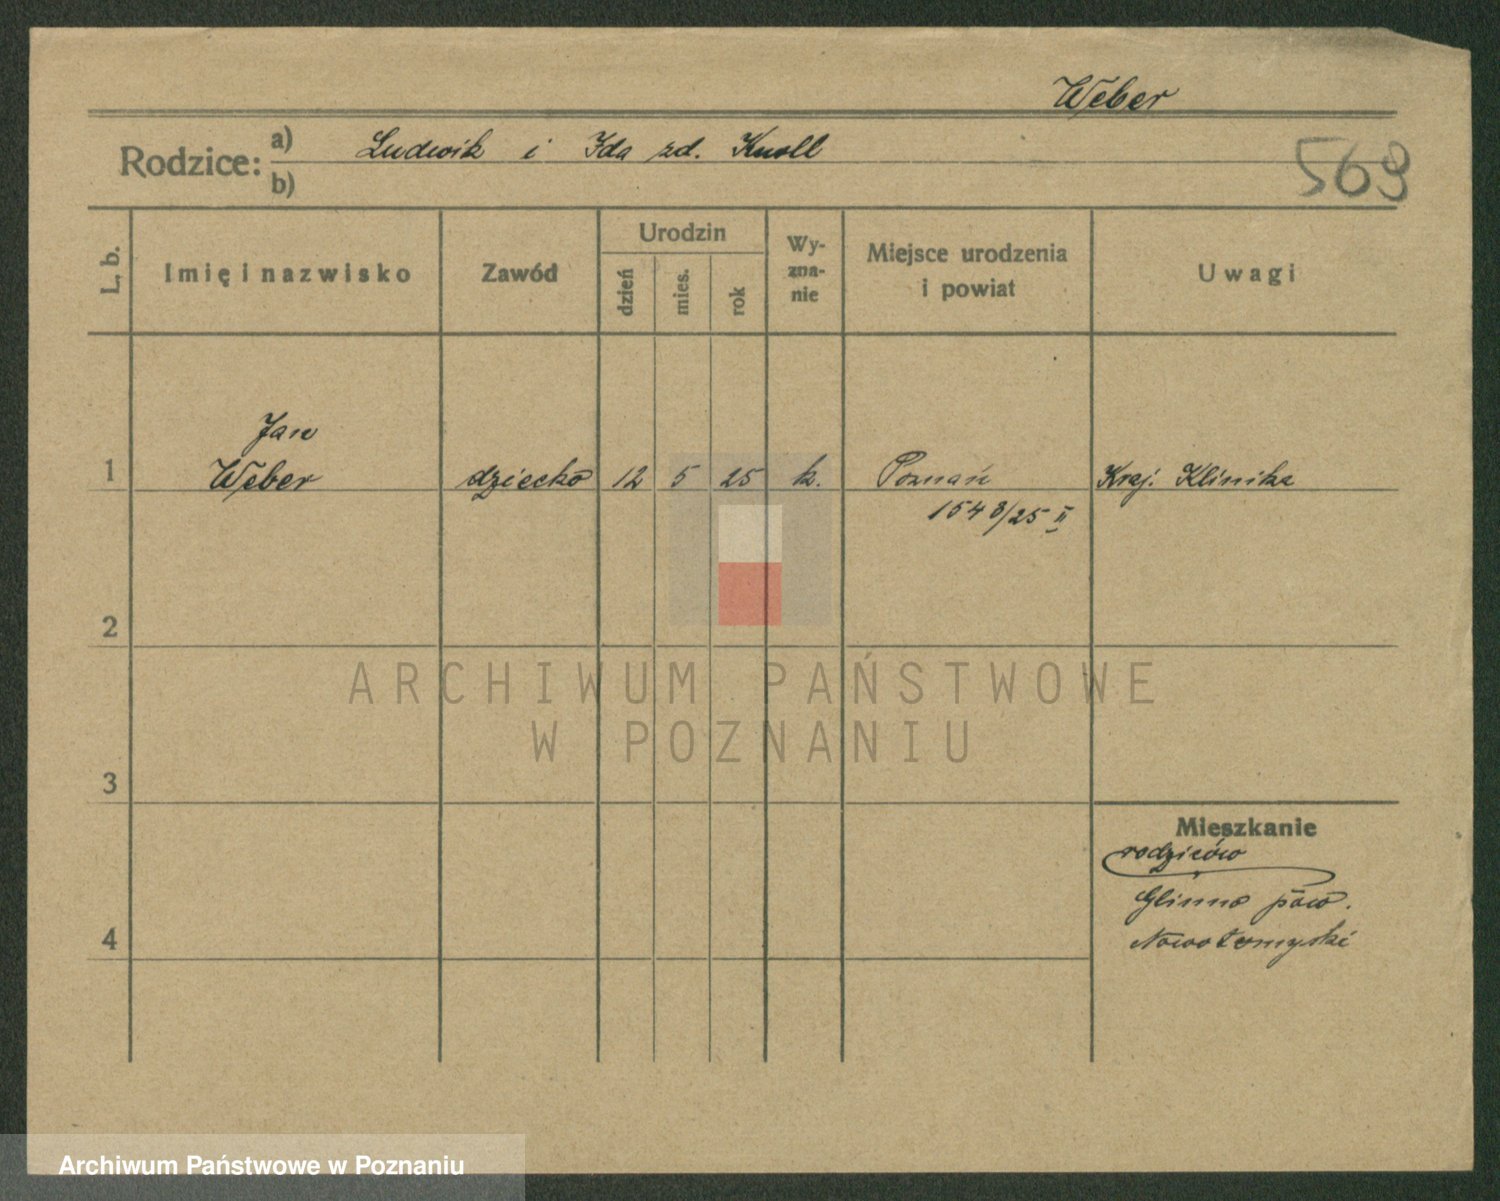 Weber
Rodzice: a) Ludwik i Ida zd. Knoll
b)
569
L. b. Imię i nazwisko Zawód Urodzin dzień mies. rok Wy-zna-nie Miejsce urodzenia i powiat Uwagi
Jan
1 Weber dziecko 12 5 25 k. Poznań Kraj. Klinika
1548/25 II
2
3
Mieszkanie
rodziców
Glinno pow.
4 Nowotomyski
ARCHIWUM PAŃSTWOWE
W POZNANIU
Archiwum Państwowe w Poznaniu